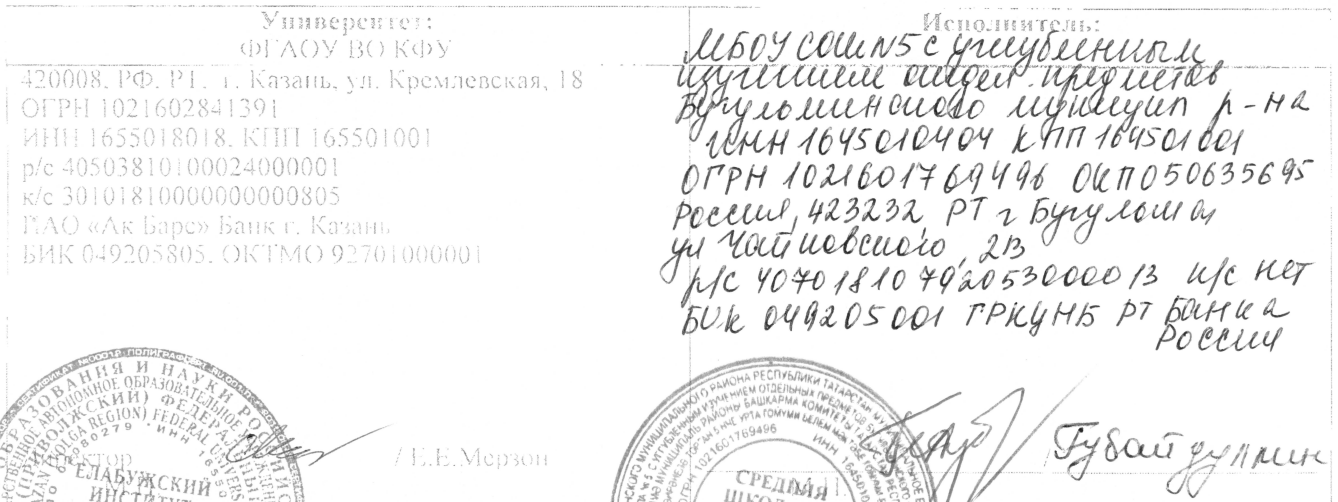 Университет:
ФГАОУ ВО КФУ
420008, РФ, РТ, г. Казань, ул. Кремлевская, 18
ОГРН 1021602841391
ИНН 1655018018, КПП 165501001
р/с 40503810100024000001
к/с 30101810000000000805
ПАО «Ак Барс» Банк г. Казань
БИК 049205805, ОКТМО 92701000001
/ Е.Е.Мерзон
Исполнитель:
МБОУ СОШ N5 с углубленным
изучением отдел. предметов
Бугульминского муницип р-на
ИНН 1645010404 КПП 164501001
ОГРН 1021601769496 ОКПО 50635695
Россия, 423232, РТ г Бугульма
ул Чайковского, 2В
р/с 40701810792053000013 к/с нет
БИК 049205001 ГРКЦ НБ РТ Банка
России
Губайдуллин
ЕЛАБУЖСКИЙ
ИНСТИТУТ
СРЕДНЯЯ
1021601769496